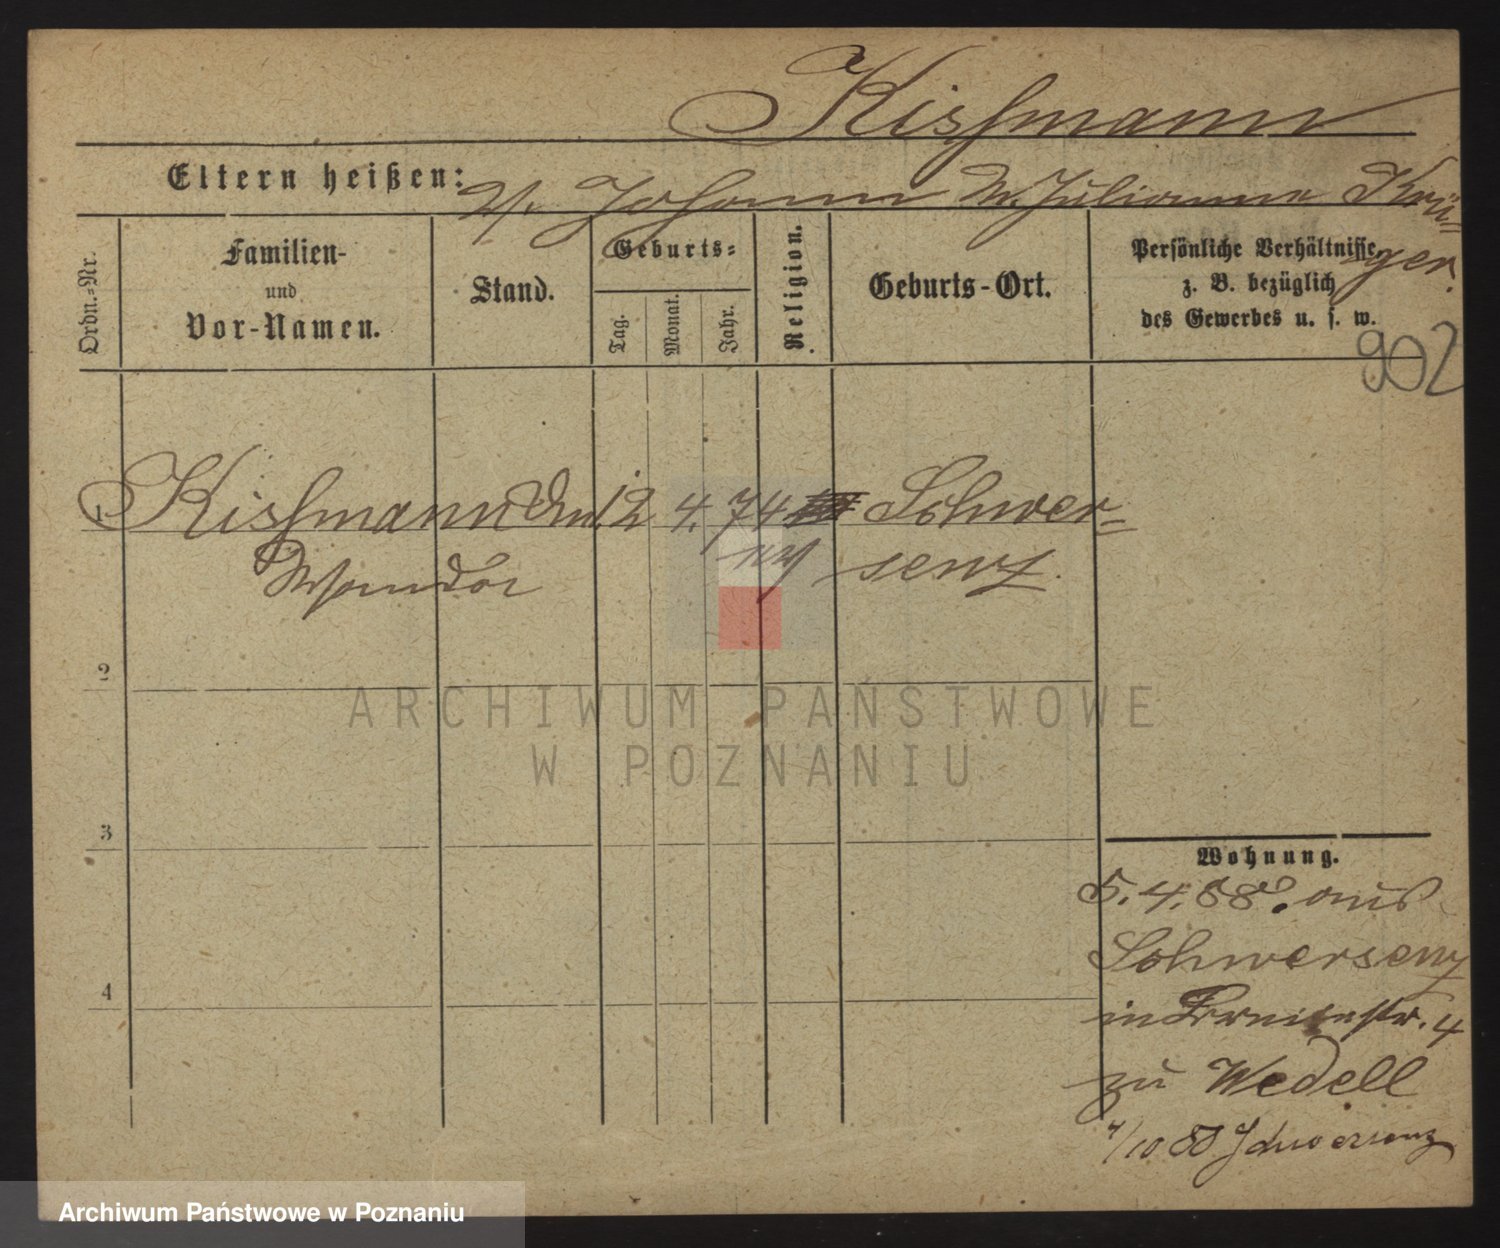 Kissmann
Eltern heißen: V. Johann M. Julianna Krü=
ger.
Ordn.-Nr.
Familien-
und
Vor-Namen.
Stand.
Geburts=
Tag.
Monat.
Jahr.
Religion.
Geburts-Ort.
Persönliche Verhältnisse,
z. B. bezüglich
des Gewerbes u. s. w.
902
1 Kissmann 12 4. 74 Schwer=
senz
2
3
4
ARCHIWUM PAŃSTWOWE
W POZNANIU
Wohnung.
5. 4. 88. aus
Schwersenz
in Breitestr. 4
zu Wedell
4/10 88 Schwersenz
Archiwum Państwowe w Poznaniu